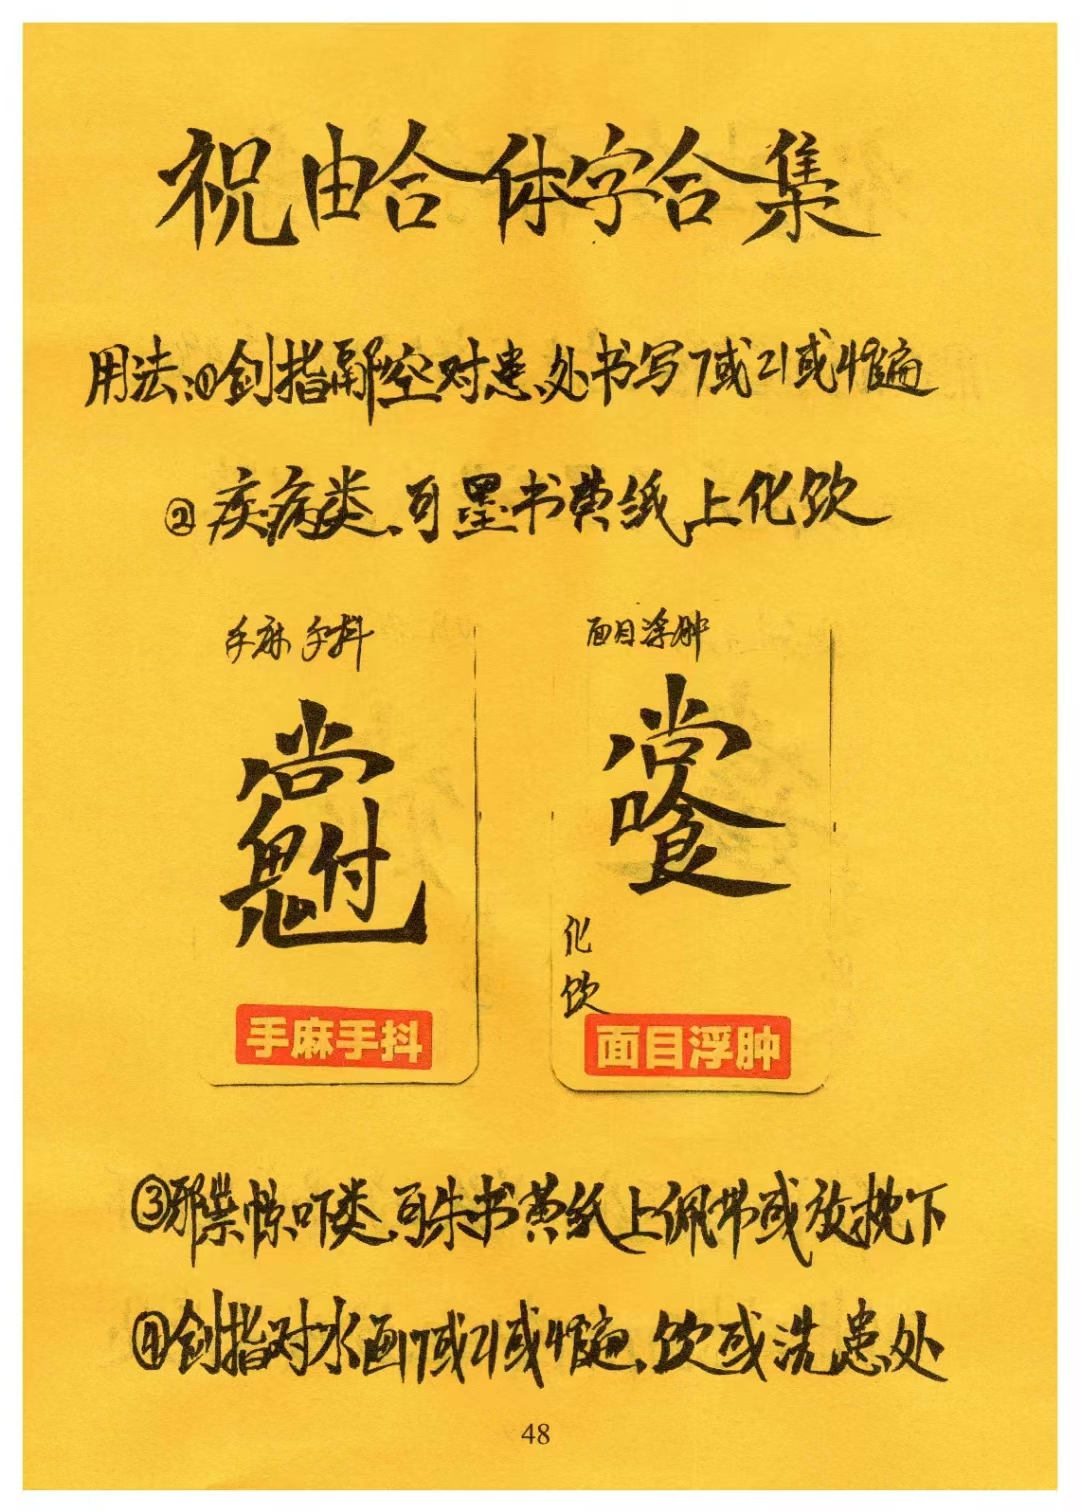 祝由合体字合集
用法:①剑指隔空对患处书写7或21或49遍
②疾病类、可墨书黄纸上化饮
手麻手抖
面目浮肿
化饮
手麻手抖
面目浮肿
③邪祟惊吓类、可朱书黄纸上佩带或放枕下
④剑指对水画7或21或49遍、饮或洗患处
48